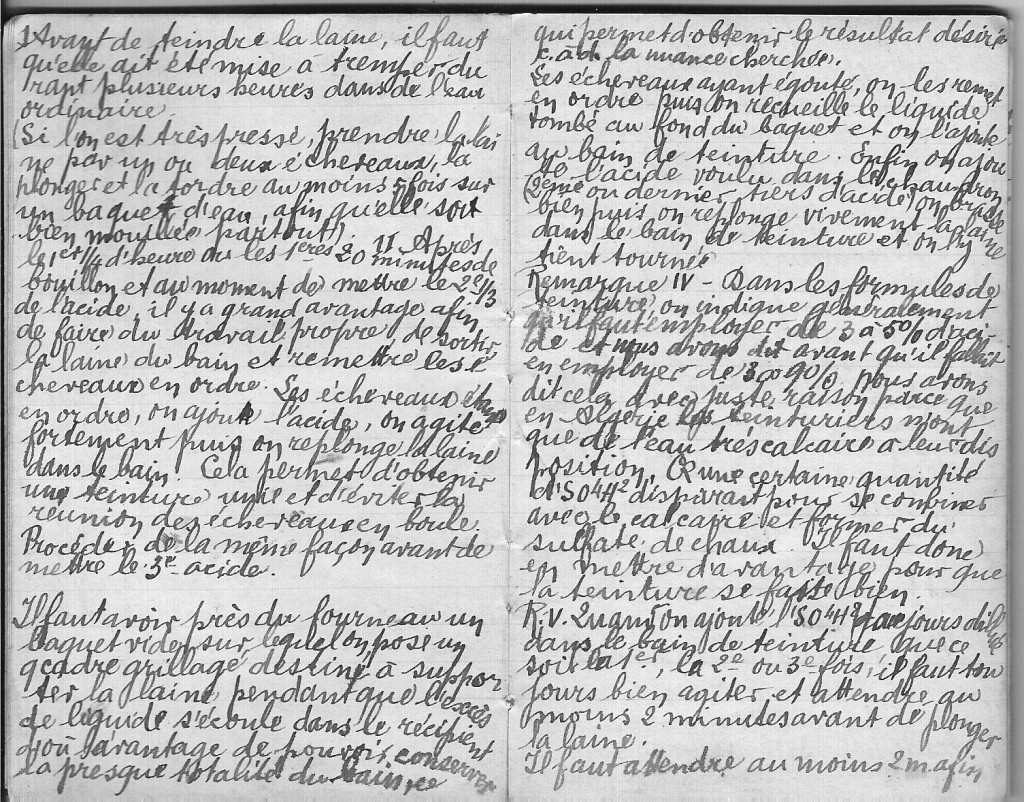 1 Avant de teindre la laine, il faut
qu'elle ait été mise à tremper du
rant plusieurs heures dans de l'eau
ordinaire
(Si l'on est très pressé, prendre la lai
ne par un ou deux écheveaux, la
plonger et la tordre au moins 5 fois sur
un baquet d'eau, afin qu'elle soit
bien mouillée partout).
II Après
le 1er 1/4 d'heure ou les 1ères 20 minutes de
bouillon et au moment de mettre le 2e 1/3
de l'acide, il y a grand avantage afin
de faire du travail propre, de sortir
la laine du bain et remettre les é
cheveaux en ordre. Les écheveaux étant
en ordre, on ajoute l'acide, on agite
fortement puis on replonge la laine
dans le bain. Cela permet d'obtenir
une teinture unie et d'éviter la
réunion des écheveaux en boule.
Procéder de la même façon avant de
mettre le 3e acide.
Il faut avoir près du fourneau un
baquet vide, sur lequel on pose un
cadre grillagé destiné à suppor
ter la laine pendant que l'excès
de liquide s'écoule dans le récipient
d'où l'avantage de pouvoir conserver
la presque totalité du bain, ce
qui permet d'obtenir le résultat désiré
c.à.d. la nuance cherchée.
Les écheveaux ayant égoutté, on les remet
en ordre puis on recueille le liquide
tombé au fond du baquet et on l'ajoute
au bain de teinture. Enfin on ajou
te l'acide voulu dans le chaudron
(2ème ou dernier tiers d'acide) on brasse
bien puis on replonge vivement la laine
dans le bain de teinture et on l'y
tient tournée
Remarque IV - Dans les formules de
teinture, on indique généralement
qu'il faut employer de 3 à 5% d'aci-
de et nous avons dit avant qu'il fallait
en employer de 3 à 90/0, nous avons
dit cela avec juste raison parce que
en Algérie les teinturiers n'ont
que de l'eau très calcaire à leur dis
position, Qu'une certaine quantité
d'SO4H2 disparait pour se combiner
avec le calcaire et former du
sulfate de chaux. Il faut donc
en mettre davantage pour que
la teinture se fasse bien.
R.V. Quand on ajoute l'SO4H2 toujours dilué
dans le bain de teinture que ce
soit la 1er, la 2e ou 3e fois, il faut tou
jours bien agiter et attendre au
moins 2 minutes avant de plonger
la laine.
Il faut attendre au moins 2 m afin